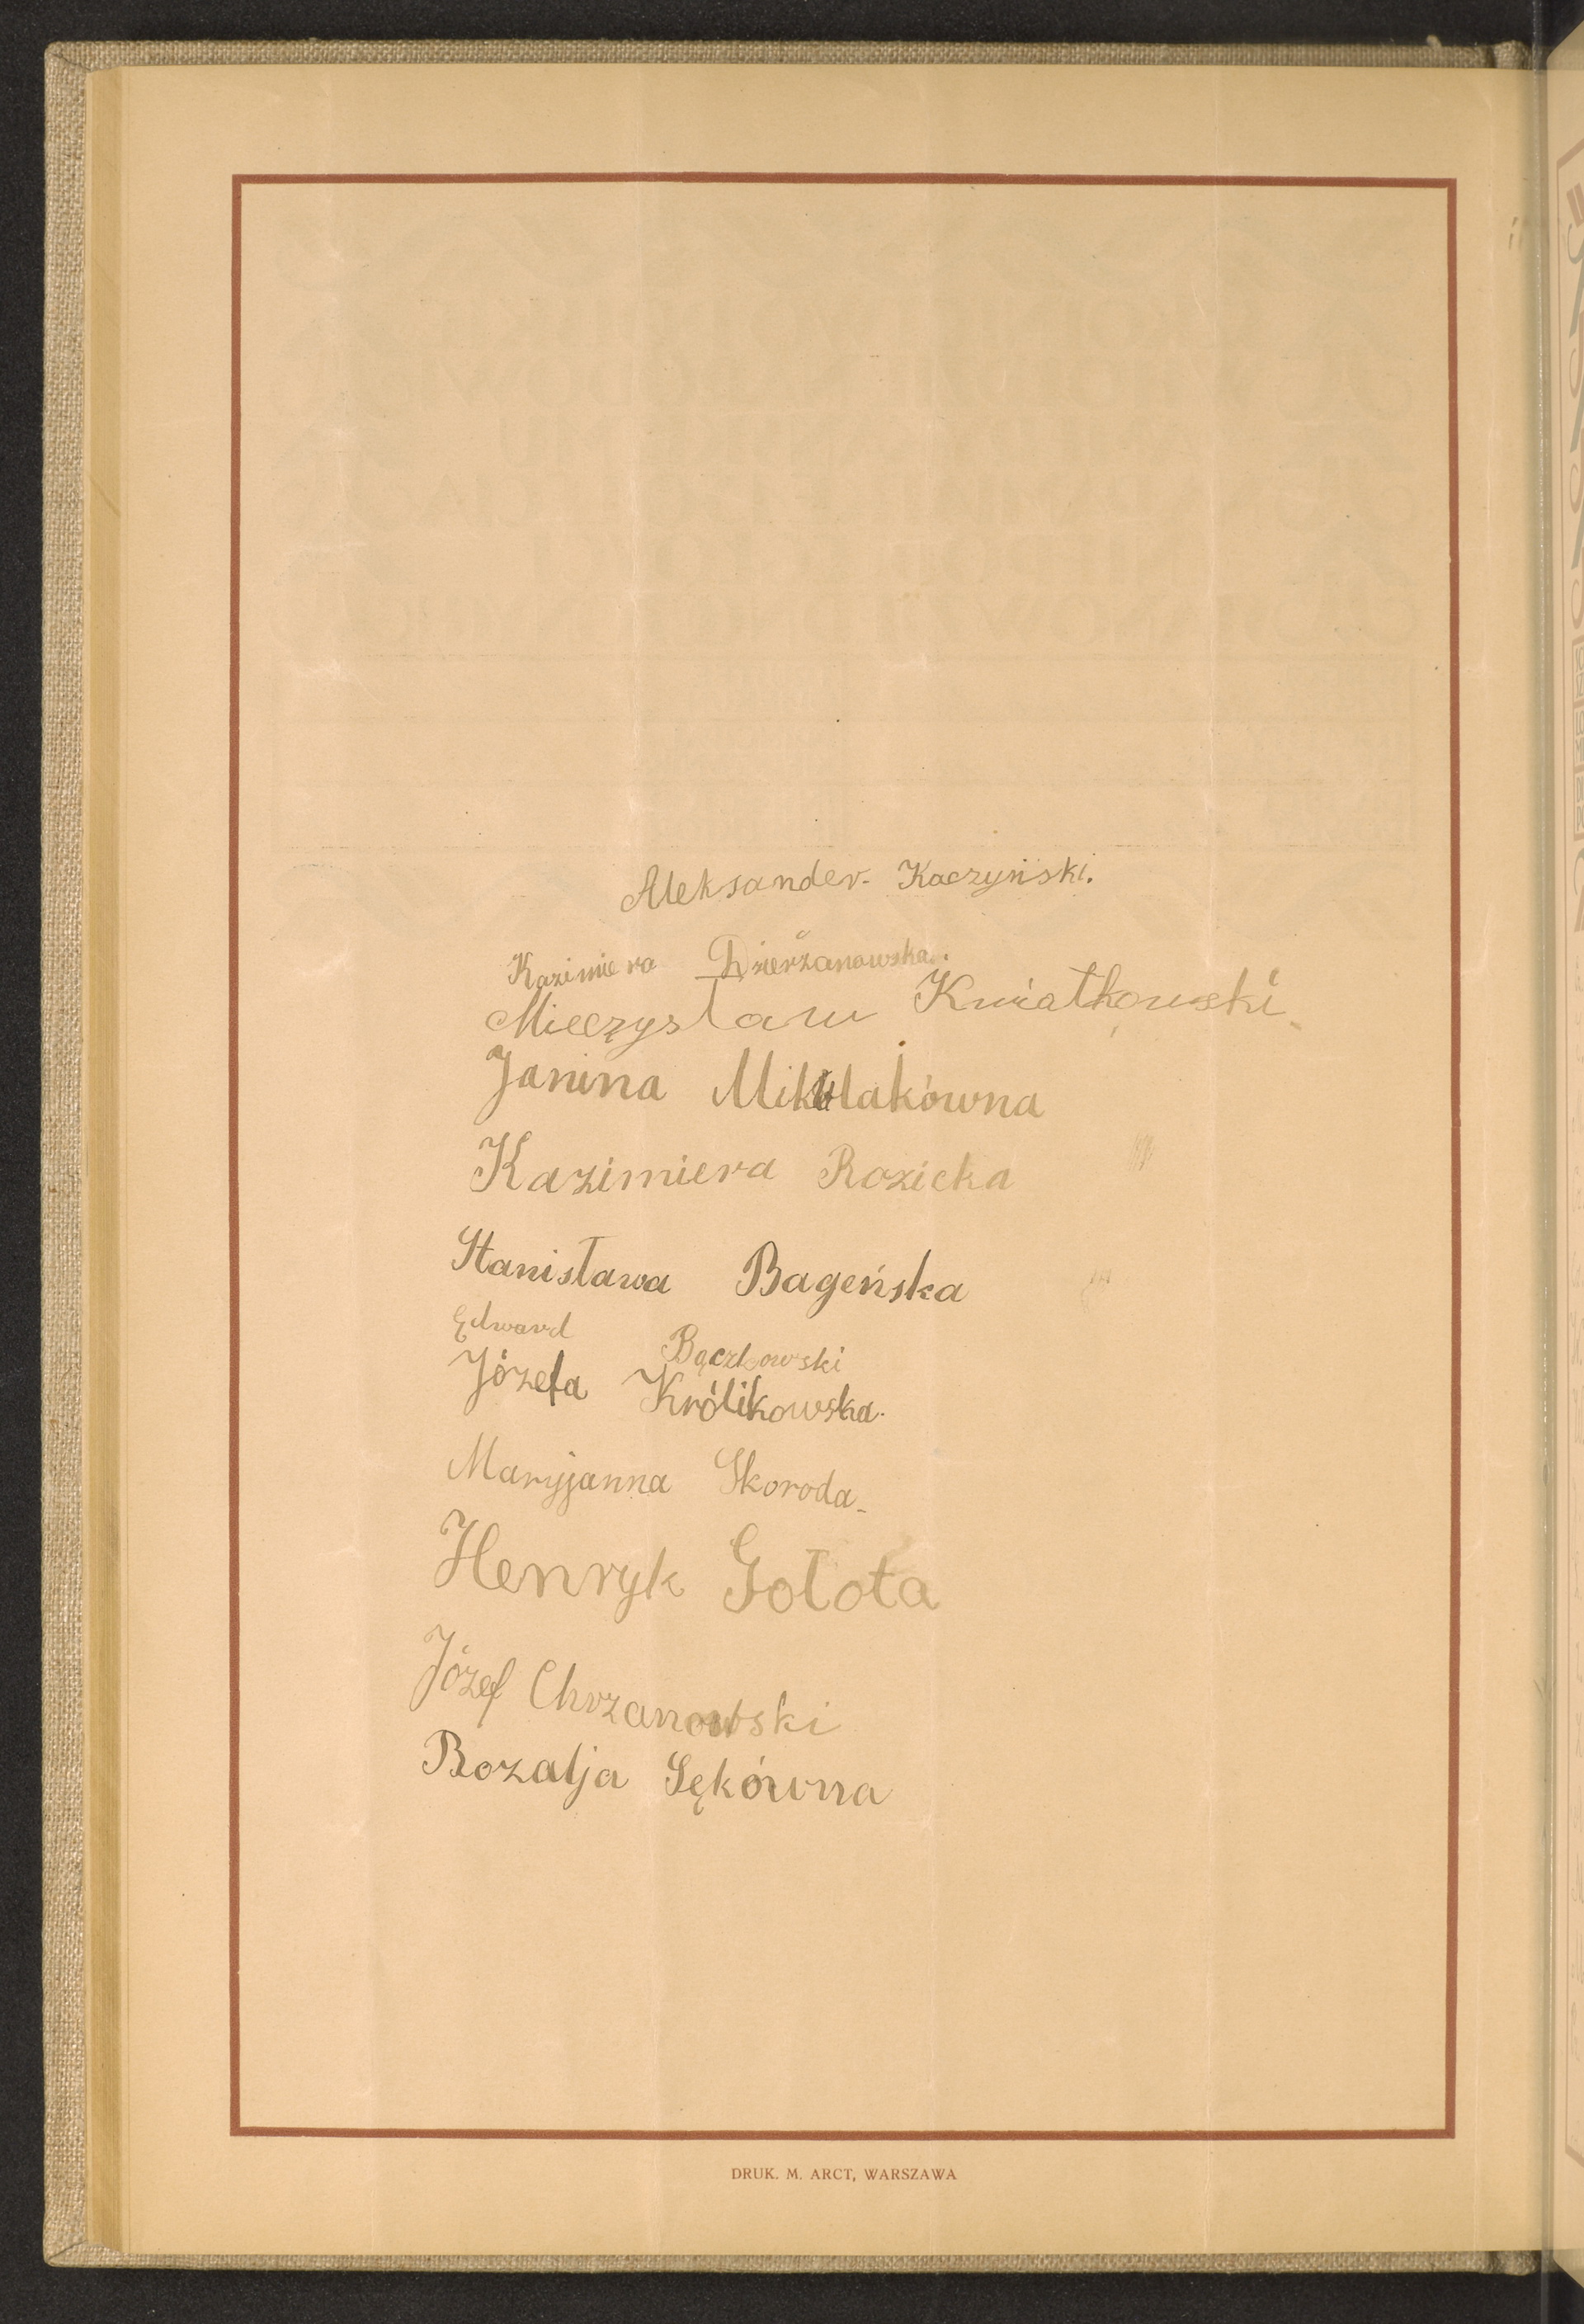 Aleksander. Kaczyński.
Kazimiera Dzierżanowska.
Mieczysław Kwiatkowski
Janina Mikulakówna
Kazimiera Rozicka
Stanisława Bageńska
Edward Bączkowski
Józefa Królikowska.
Maryjanna Skoroda
Henryk Gołota
Józef Chrzanowski
Rozalja Sękówna
DRUK. M. ARCT, WARSZAWA